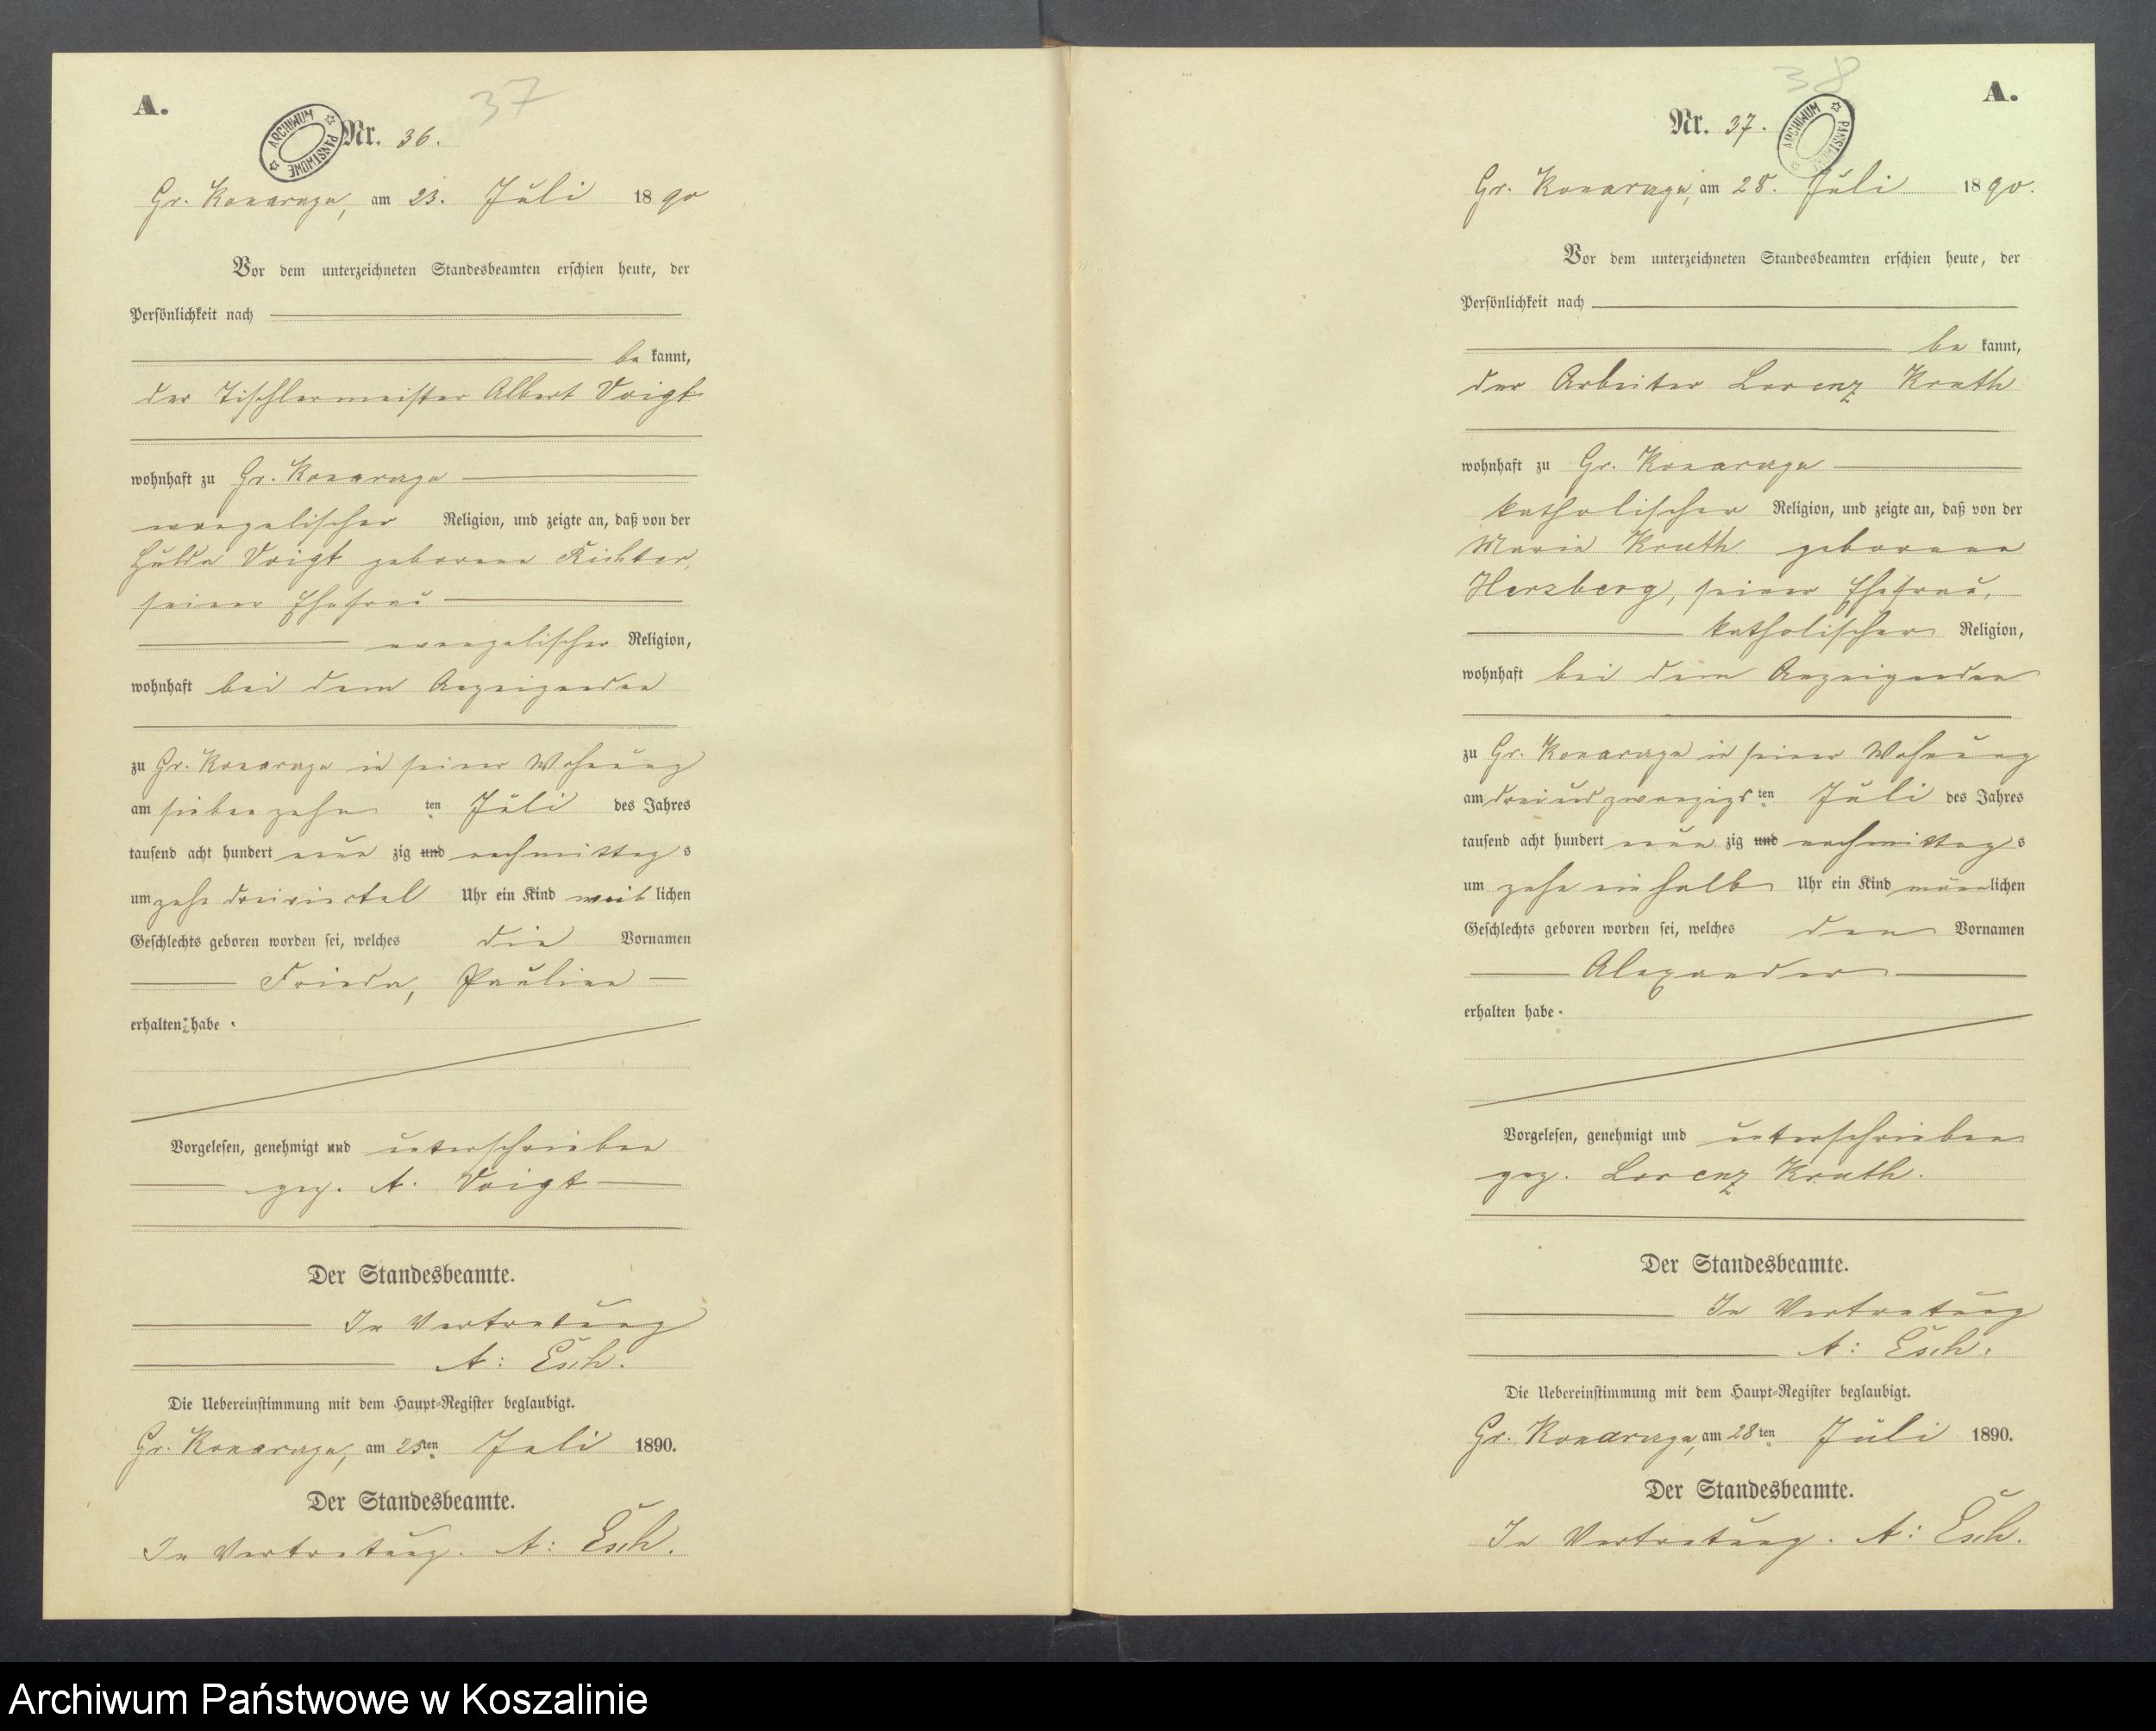 A.
37
ARCHIWUM PAŃSTWOWE
Nr. 36.
Gr. Konarczyn, am 23. Juli 1890
Vor dem unterzeichneten Standesbeamten erschien heute, der
Persönlichkeit nach
be kannt,
der Tischlermeister Albert Voigt
wohnhaft zu Gr. Konarczyn
evangelischer Religion, und zeigte an, daß von der
Hulda Voigt geborene Richter,
seiner Ehefrau
evangelischer Religion,
wohnhaft bei dem Anzeigenden
zu Gr. Konarczyn in seiner Wohnung
am siebenzehn ten Juli des Jahres
tausend acht hundert neun zig und nachmittag s
um zehn dreiviertel Uhr ein Kind weib lichen
Geschlechts geboren worden sei, welches die Vornamen
Frieda, Pauline
erhalten habe.
Vorgelesen, genehmigt und unterschrieben
gez. A. Voigt
Der Standesbeamte.
In Vertretung
A: Esch.
Die Uebereinstimmung mit dem Haupt-Register beglaubigt.
Gr. Konarczyn, am 25ten Juli 1890.
Der Standesbeamte.
In Vertretung. A: Esch.
38
A.
Nr. 37.
ARCHIWUM PAŃSTWOWE
Gr. Konarczyn, am 28. Juli 1890.
Vor dem unterzeichneten Standesbeamten erschien heute, der
Persönlichkeit nach
be kannt,
der Arbeiter Lorenz Kruth
wohnhaft zu Gr. Konarczyn
katholischer Religion, und zeigte an, daß von der
Maria Kruth geborenen
Herzberg, seiner Ehefrau,
katholischer Religion,
wohnhaft bei dem Anzeigenden
zu Gr. Konarczyn in seiner Wohnung
am dreiundzwanzigs ten Juli des Jahres
tausend acht hundert neun zig und nachmittag s
um zehn einhalb Uhr ein Kind männ lichen
Geschlechts geboren worden sei, welches den Vornamen
Alexander
erhalten habe.
Vorgelesen, genehmigt und unterschrieben
gez. Lorenz Kruth.
Der Standesbeamte.
In Vertretung
A: Esch.
Die Uebereinstimmung mit dem Haupt-Register beglaubigt.
Gr. Konarczyn, am 28ten Juli 1890.
Der Standesbeamte.
In Vertretung. A: Esch.
Archiwum Państwowe w Koszalinie